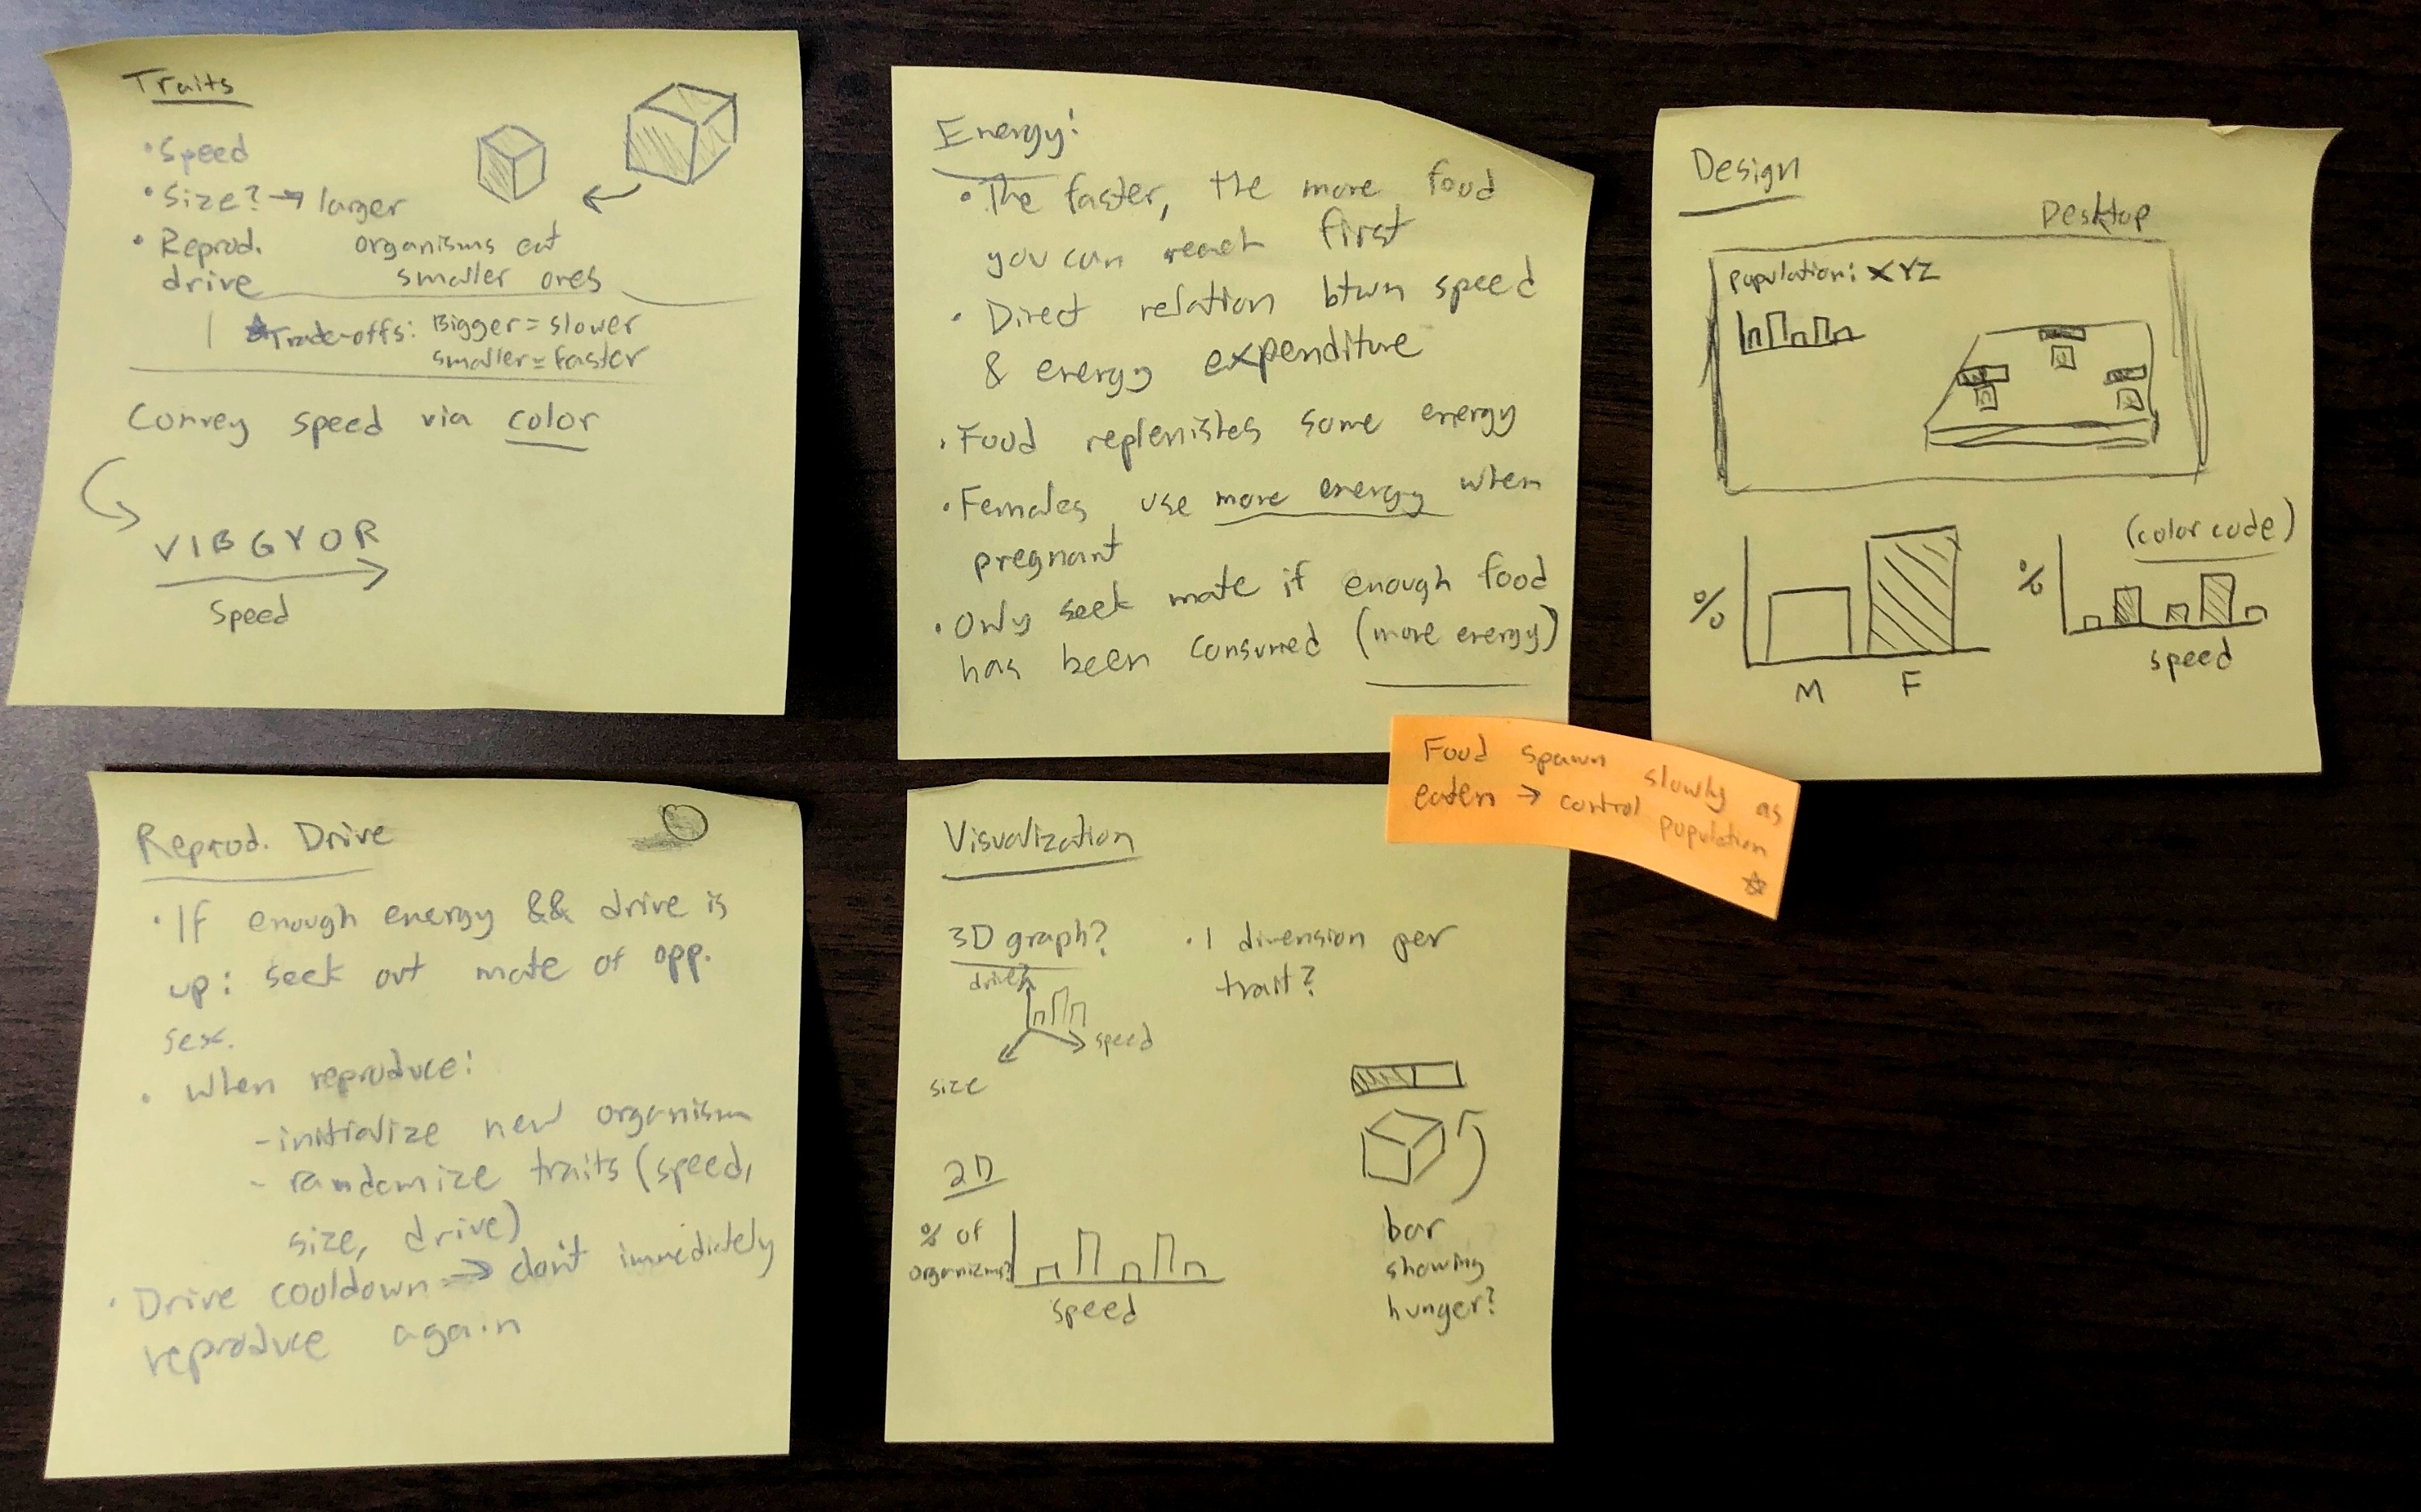 Traits
• Speed
• Size? → larger
organisms eat
smaller ones
• Reprod.
drive
☆Trade-offs: Bigger = slower
smaller = faster
Convey speed via color
VIBGYOR
Speed
Energy:
• The faster, the more food
you can reach first
• Direct relation btwn speed
& energy expenditure
• Food replenishes some energy
• Females use more energy when
pregnant
• Only seek mate if enough food
has been consumed (more energy)
Design
Desktop
Population: XYZ
%
M F
(color code)
%
speed
Food spawn slowly as
eaten → control population
☆
Reprod. Drive
• If enough energy && drive is
up: seek out mate of opp.
sex.
• When reproduce:
- initialize new organism
- randomize traits (speed,
size, drive)
• Drive cooldown → don't immediately
reproduce again
Visualization
3D graph?
• 1 dimension per
trait?
drive?
speed
size
2D
% of
organisms?
Speed
bar
showing
hunger?